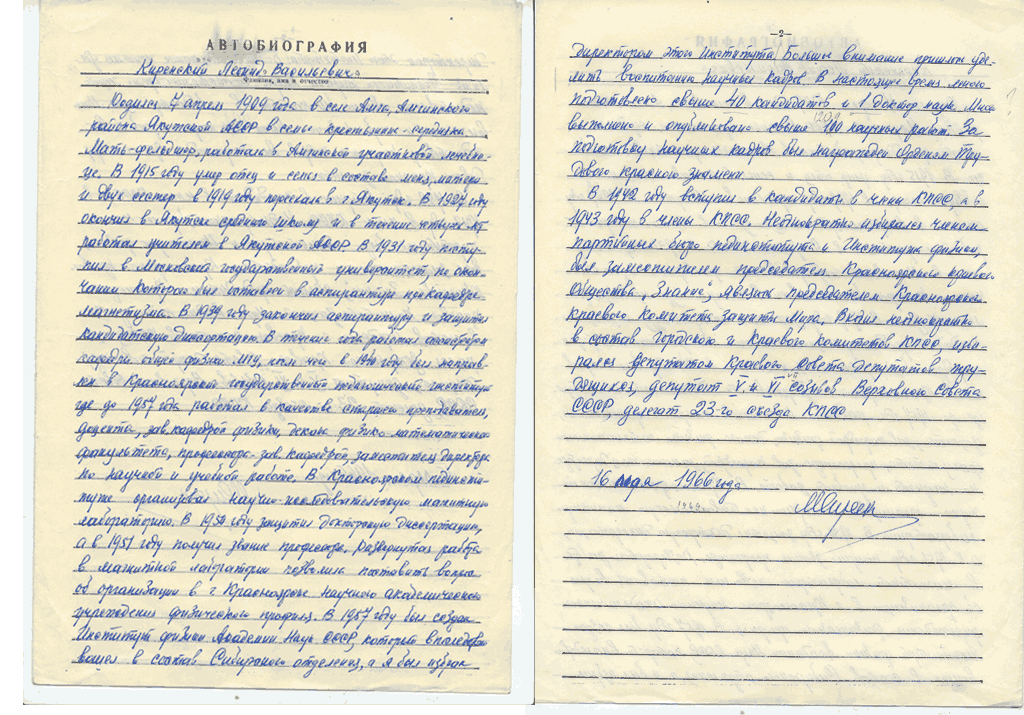 АВТОБИОГРАФИЯ
Киренский Леонид Васильевич
Фамилия, имя и отчество
Родился 7 апреля 1909 года в селе Амга, Амгинского
района Якутской АССР в семье крестьянина-середняка.
Мать-фельдшер, работала в Амгинской участковой лечебни-
це. В 1915 году умер отец и семья в составе меня, матери
и двух сестер в 1919 году переехала в г. Якутск. В 1927 году
окончил в Якутске среднюю школу и в течение четырех лет
работал учителем в Якутской АССР. В 1931 году посту-
пил в Московский государственный университет, по окон-
чании которого был оставлен в аспирантуре при кафедре
магнетизма. В 1939 году закончил аспирантуру и защитил
кандидатскую диссертацию. В течение года работал
кафедры общей физики МГУ, после чего в 1940 году был направ-
лен в Красноярский государственный педагогический институт,
где до 1957 года работал в качестве старшего преподавателя,
доцента, зав. кафедрой физики, декана физико-математического
факультета, профессора-зав. кафедрой, заместителя директора
по научной и учебной работе. В Красноярском пединсти-
туте организовал научно-исследовательскую магнитную
лабораторию. В 1950 году защитил докторскую диссертацию,
а в 1951 году получил звание профессора. Развернутая работа
в магнитной лаборатории позволила поставить вопрос
об организации в г. Красноярске научного академического
учреждения физического профиля. В 1957 году был создан
Институт физики Академии Наук СССР, который впоследствии
вошел в состав Сибирского отделения, а я был избран
-2-
директором этого Института. Большое внимание пришлось уде-
лить воспитанию научных кадров. В настоящее время мною
подготовлено свыше 40 кандидатов и 1 доктор наук. Мною
выполнено и опубликовано свыше 100 научных работ. За
подготовку научных кадров был награжден Орденом Тру-
дового красного знамени.
В 1942 году вступил в кандидаты в члены КПСС, а в
1943 году в члены КПСС. Неоднократно избирался членом
партийных бюро пединститута и Института физики,
был заместителем председателя Красноярского краевого
Общества „Знание", являюсь председателем Красноярского
краевого Комитета защиты Мира. Входил неоднократно
в состав городского и Краевого комитетов КПСС, изби-
рался депутатом Краевого Совета депутатов тру-
дящихся, депутат V и VI созывов Верховного Совета
СССР, делегат 23-го съезда КПСС
16 мая 1966 года